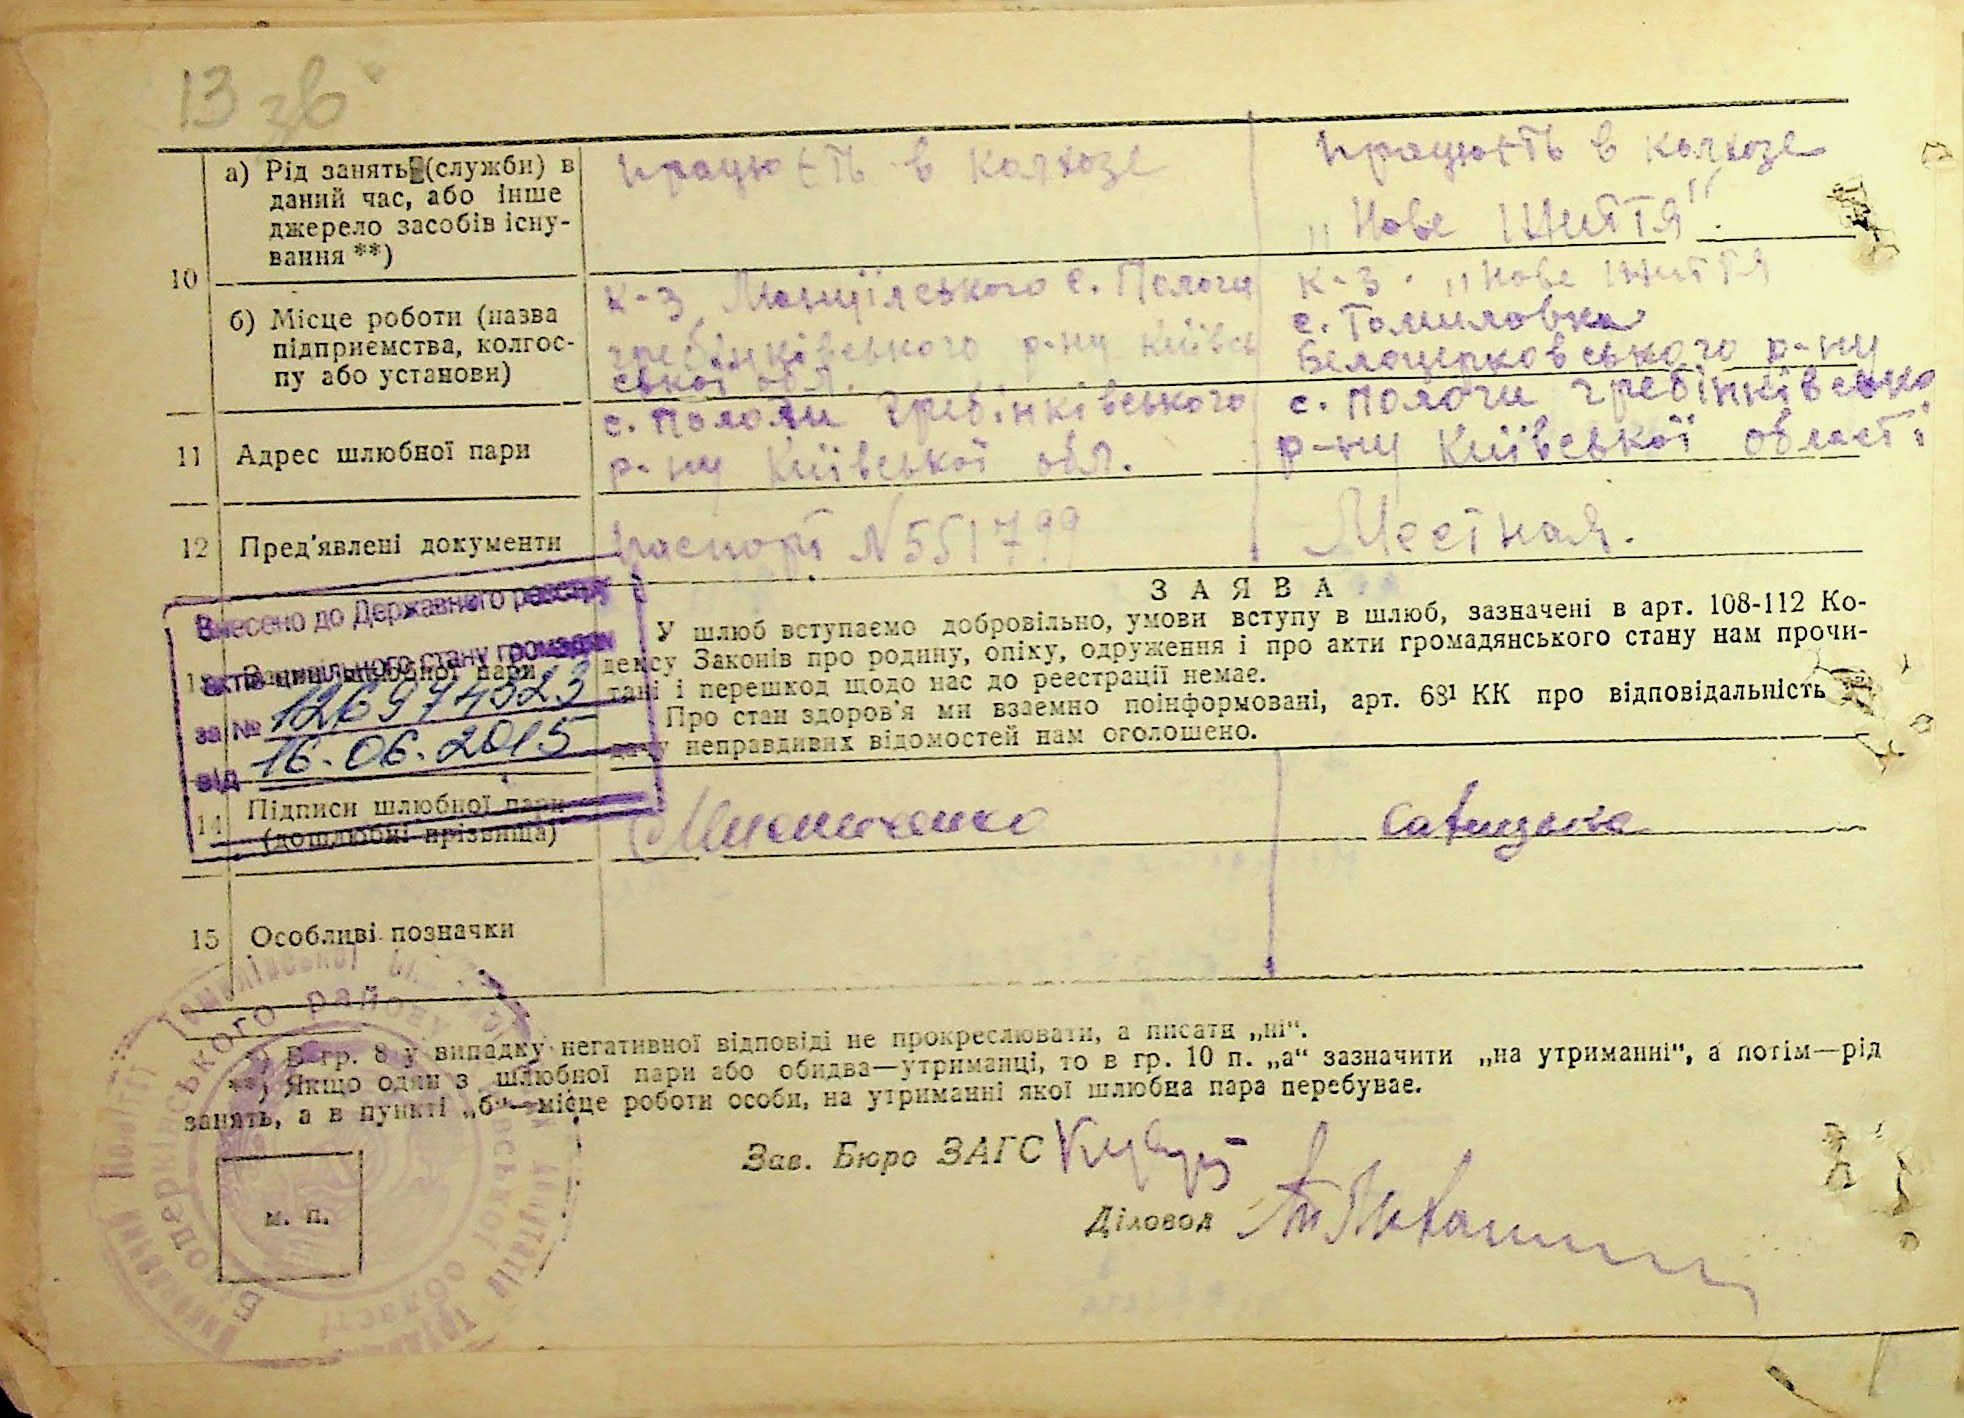 13 зв
10
а) Рід занять (служби) в
даний час, або інше
джерело засобів існу-
вання **)
працюєть в колхозе
працюєть в колхозе
„Нове життя".
б) Місце роботи (назва
підприємства, колгос-
пу або установи)
к-з с. Пологи
гребінківського р-ну Київсь
ської обл.
к-з. „Нове життя
с. Томиловка
Белоцерковського р-ну
11 Адрес шлюбної пари
с. Пологи гребінківського
р-ну Київської обл.
с. Пологи гребінківсько
р-ну Київської області
12 Пред'явлені документи
паспорт N 551799
Местная.
Внесено до Державного реєстру
актів цивільного стану громадян
за № 126974523
від 16.06.2015
шлюбної пари
ЗАЯВА
У шлюб вступаємо добровільно, умови вступу в шлюб, зазначені в арт. 108-112 Ко-
дексу Законів про родину, опіку, одруження і про акти громадянського стану нам прочи-
тані і перешкод щодо нас до реєстрації немає.
Про стан здоров'я ми взаємно поінформовані, арт. 68¹ КК про відповідальність
дачу неправдивих відомостей нам оголошено.
14 Підписи шлюбної пари
(дошлюбні прізвища)
15 Особливі позначки
*) В гр. 8 у випадку негативної відповіді не прокреслювати, а писати „ні“.
**) Якщо один з шлюбної пари або обидва—утриманці, то в гр. 10 п. „а“ зазначити „на утриманні“, а потім—рід
занять, а в пункті „б“—місце роботи особи, на утриманні якої шлюбна пара перебуває.
Зав. Бюро ЗАГС
Діловод
м. п.